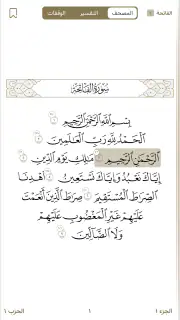 الفاتحة
المصحف
التفسير
الوقفات
سُورَةُ الفَاتِحَةِ
بِسْمِ ٱللَّهِ ٱلرَّحْمَٰنِ ٱلرَّحِيمِ ١
ٱلْحَمْدُ لِلَّهِ رَبِّ ٱلْعَٰلَمِينَ ٢
ٱلرَّحْمَٰنِ ٱلرَّحِيمِ ٣ مَٰلِكِ يَوْمِ ٱلدِّينِ ٤
إِيَّاكَ نَعْبُدُ وَإِيَّاكَ نَسْتَعِينُ ٥ ٱهْدِنَا
ٱلصِّرَٰطَ ٱلْمُسْتَقِيمَ ٦ صِرَٰطَ ٱلَّذِينَ أَنْعَمْتَ
عَلَيْهِمْ غَيْرِ ٱلْمَغْضُوبِ عَلَيْهِمْ
وَلَا ٱلضَّآلِّينَ ٧
الجزء ١
١
الحزب ١